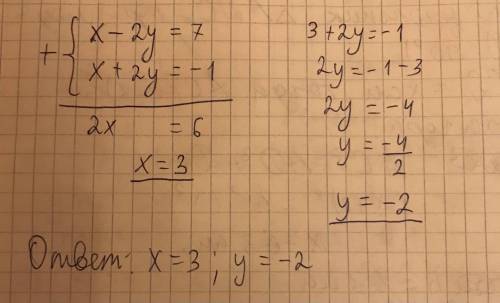 + { x - 2y = 7
x + 2y = -1
2x = 6
x = 3
3 + 2y = -1
2y = -1 - 3
2y = -4
y = -4/2
y = -2
Ответ: x = 3 ; y = -2